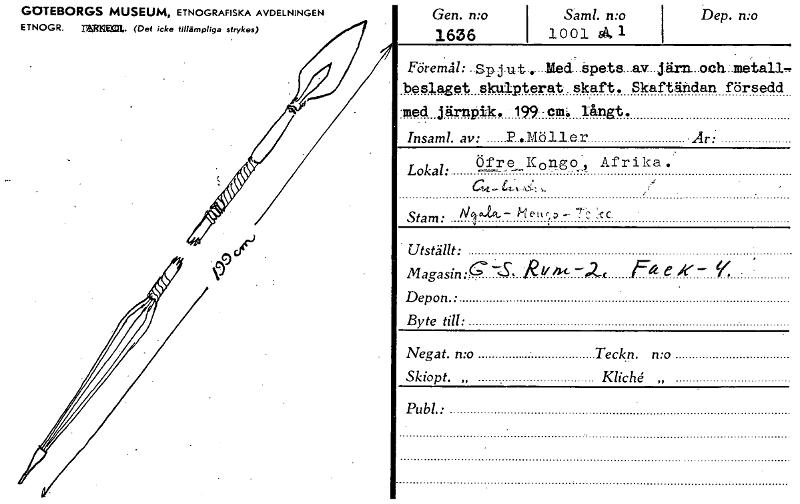 GÖTEBORGS MUSEUM, ETNOGRAFISKA AVDELNINGEN
ETNOGR. (Det icke tillämpliga strykes)
199 cm
Gen. n:o Saml. n:o Dep. n:o
1636 1001 A 1
Föremål: Spjut. Med spets av järn och metall-
beslaget skulpterat skaft. Skaftändan försedd
med järnpik. 199 cm. långt.
Insaml. av: P.Möller År:
Lokal: Öfre Kongo, Afrika.
Stam: Ngala-
Utställt:
Magasin: G-S. Rum-2. Fack-4.
Depon.:
Byte till:
Negat. n:o Teckn. n:o
Skiopt. „ Kliché „
Publ.: